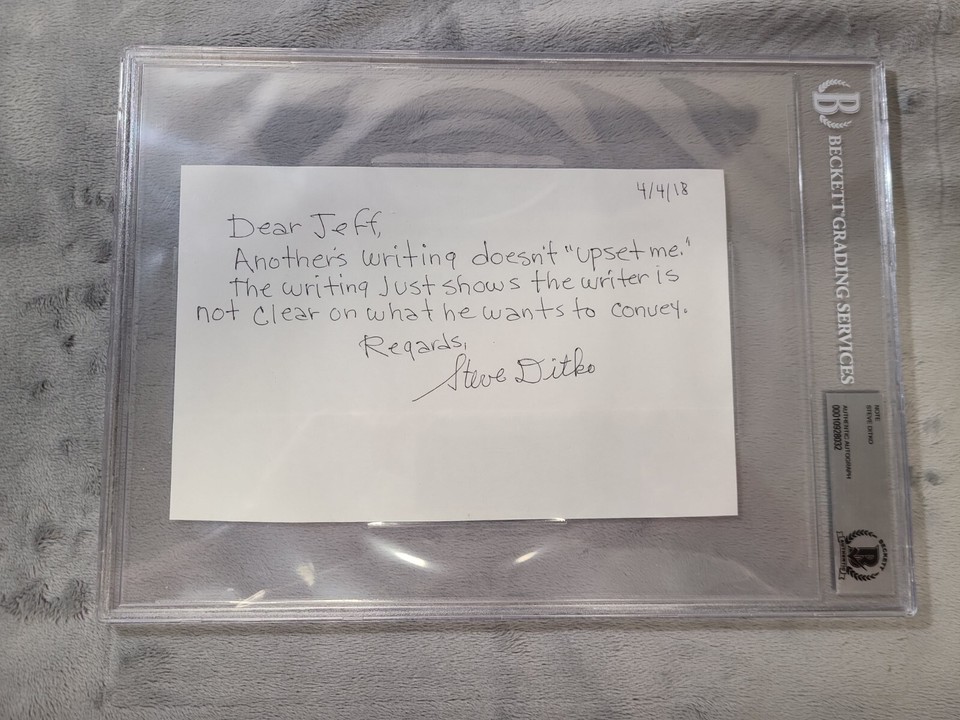 4/4/18
Dear Jeff,
Another's writing doesn't "upset me."
the writing Just shows the writer is
not clear on what he wants to convey.
Regards,
Steve Ditko
B
BECKETT GRADING SERVICES
NOTE
STEVE DITKO
AUTHENTIC AUTOGRAPH
BECKETT
B